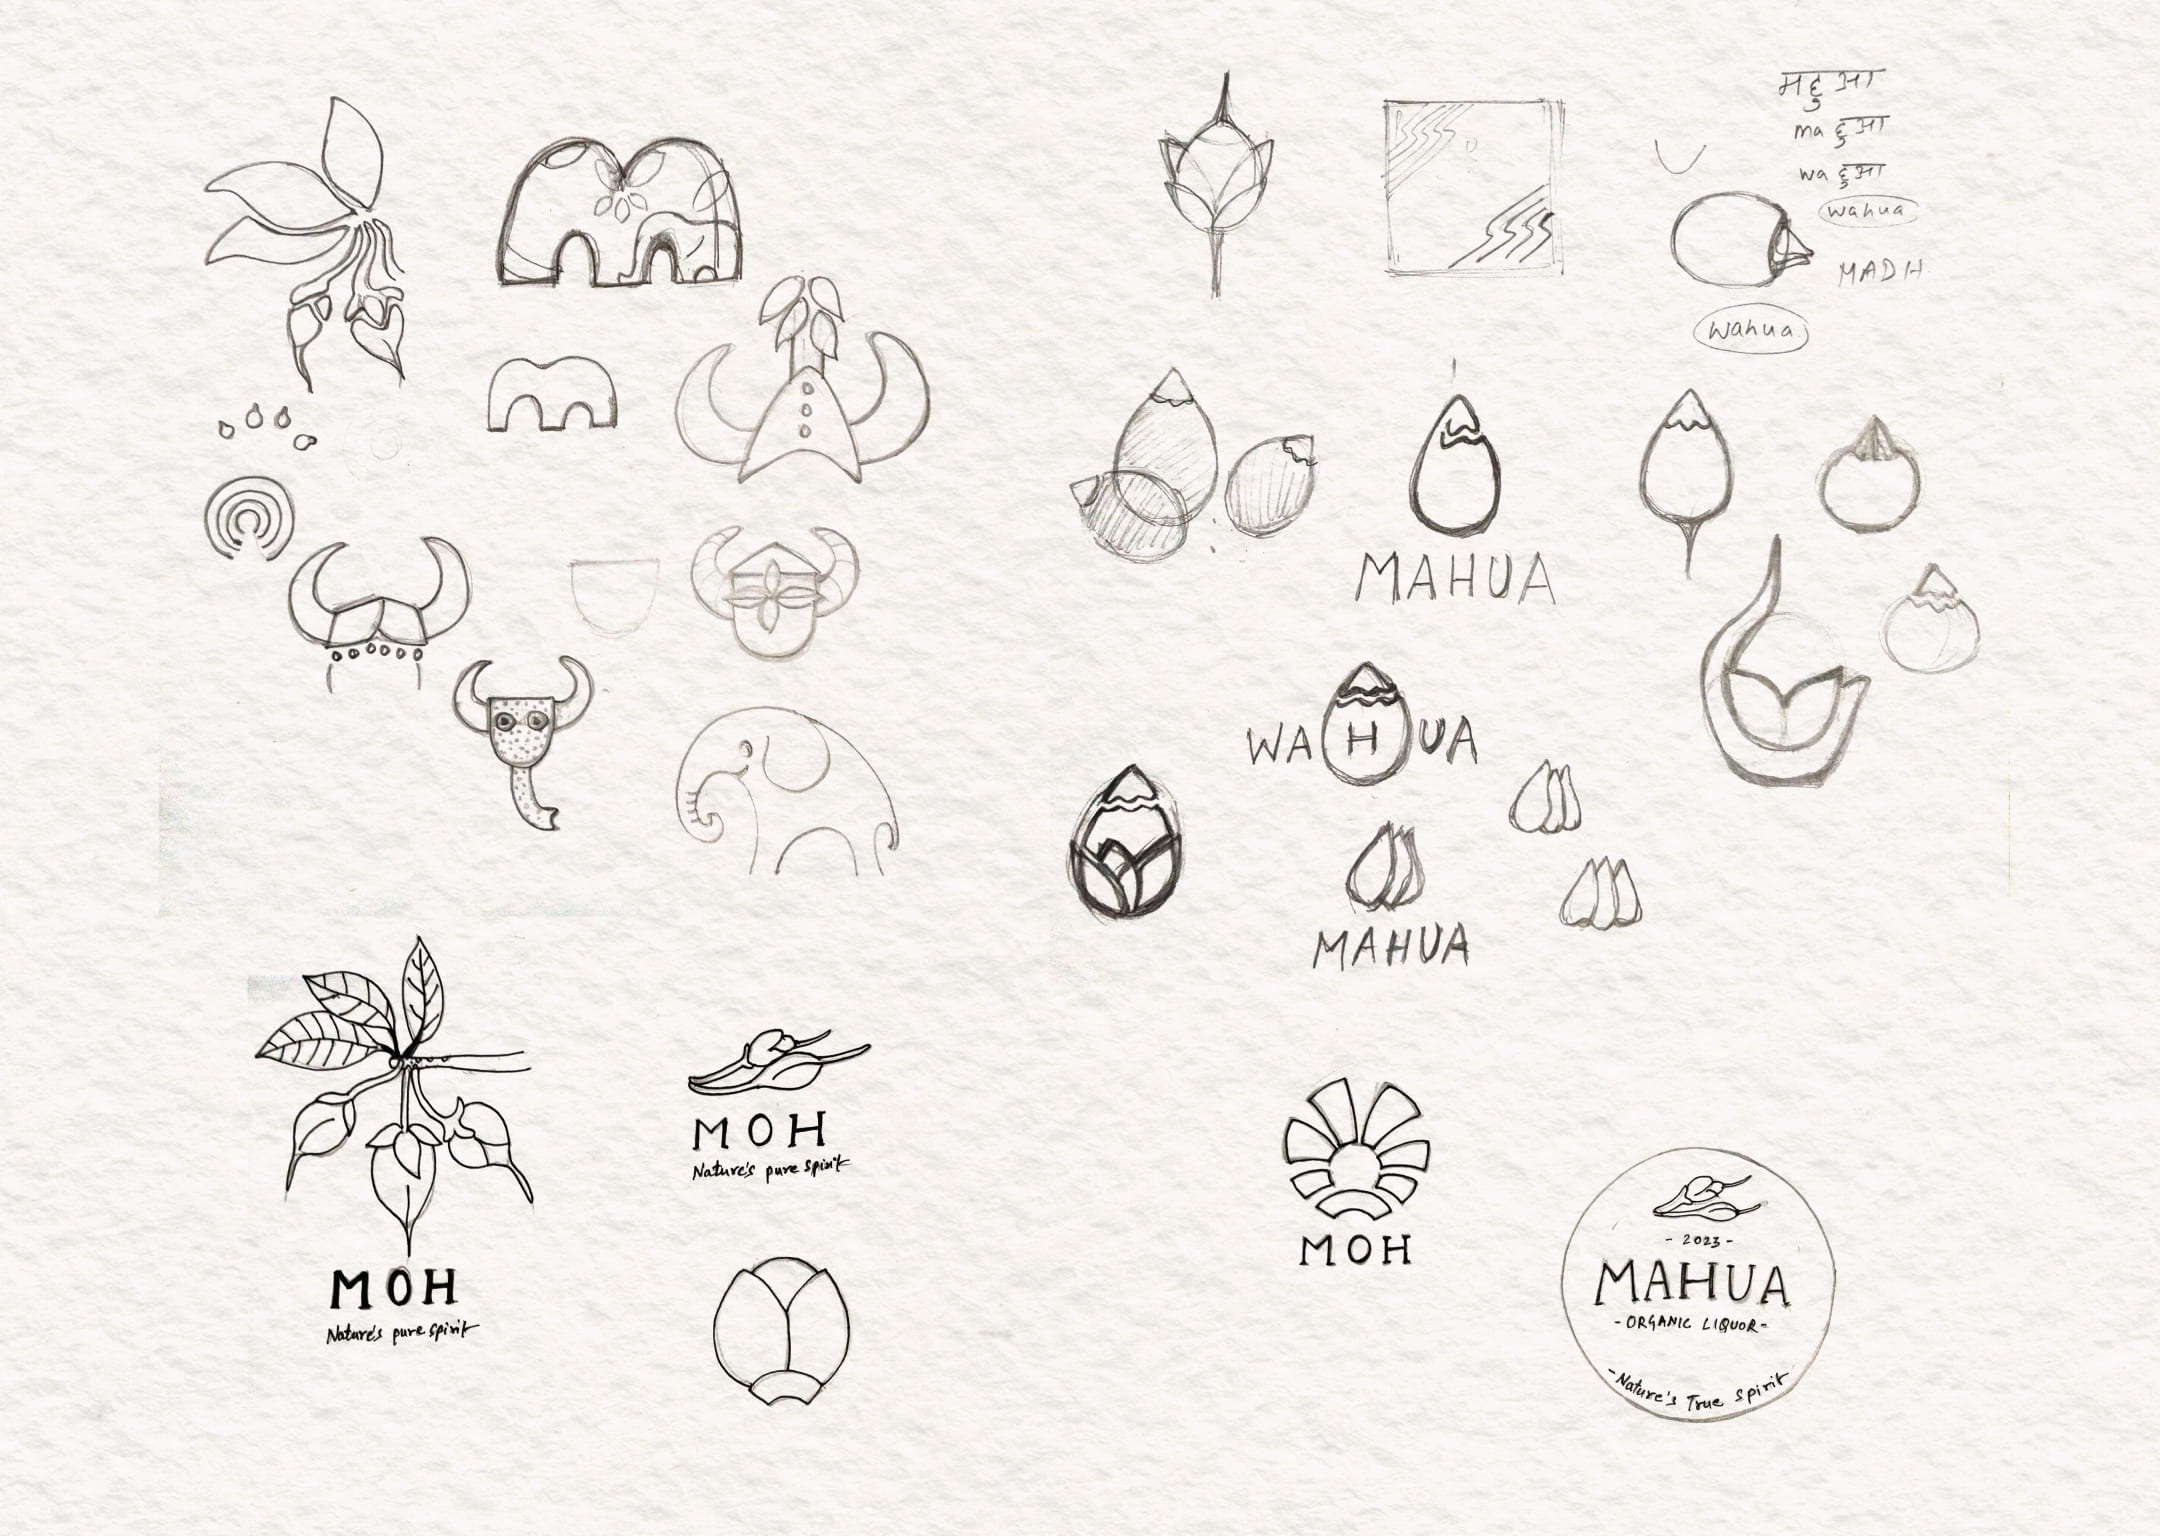 महुआ
maहुआ
waहुआ
wahua
MADH
Wahua
MAHUA
WAHUA
MAHUA
MOH
Nature's pure spirit
MOH
Nature's pure spirit
MOH
- 2023 -
MAHUA
- ORGANIC LIQUOR -
- Nature's True Spirit